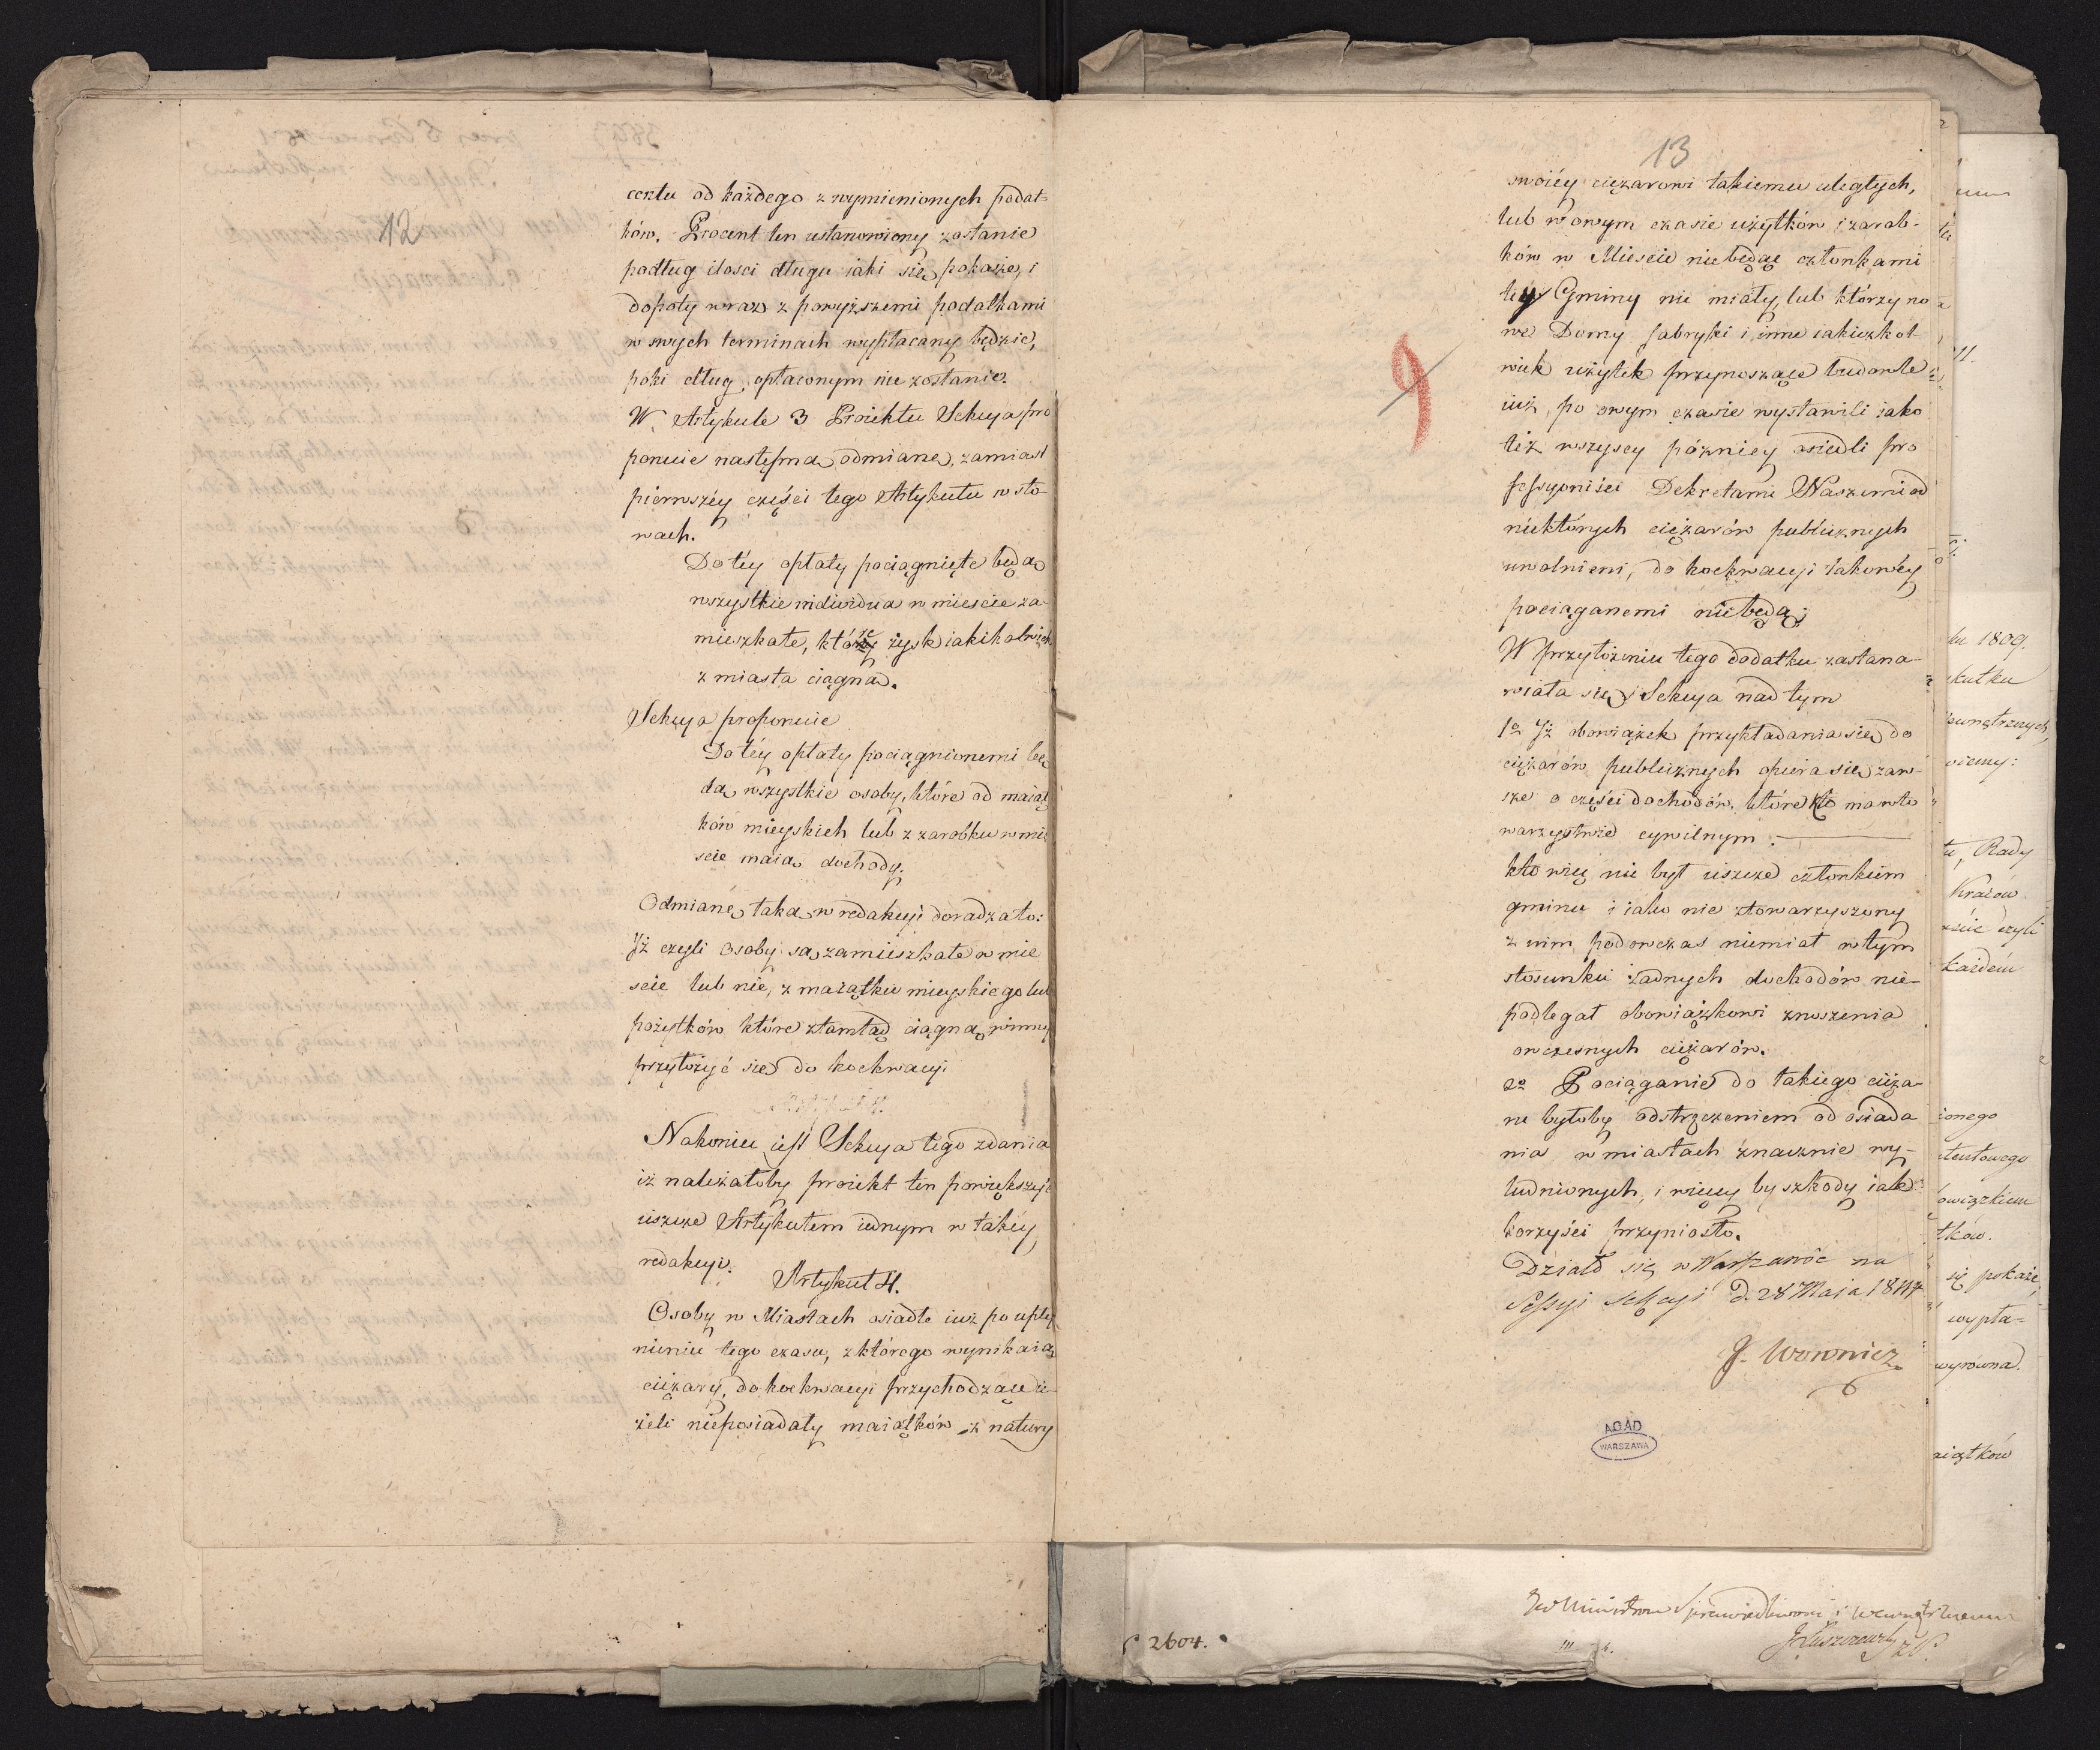 12
centu od każdego z wymienionych podat-
ków. Procent ten ustanowiony zostanie
podług ilosci długu iaki się pokaże, i
dopoty wraz z powyższemi podatkami
w swych terminach wypłacany będzie,
poki dług opłaconym nie zostanie.
W Artykule 3 Proiektu Sekcya pro
ponuie następną odmianę, zamiast
pierwszéy części tego Artykułu w sło-
wach.
Do téy opłaty pociągnięte będą
wszystkie individua w miescie za-
mieszkałe, które zysk iakikolwiek
z miasta ciągną.
Sekcya proponuie
Do téy opłaty pociągnionemi bę
dą wszystkie osoby, które od maiąt
ków mieyskich lub z zarobku w mie
scie maią dochody.
Odmianę taką w redakcyi doradzało:
Jż czyli Osoby są zamieszkałe w mie
scie lub nie, z maiątku mieyskiego lub
pożytków które ztamtąd ciągną, winny
przyłożyć się do kockwacyi
Nakoniec iest Sekcya tego zdania
iż należałoby proiekt ten powiększyć
ieszcze Artykułem iednym w takiéy
redakcyi.
Artykuł 4.
Osoby w Miastach osiadłe iuż po upły
nieniu tego czasu, z którego wynikaią
ciężary, do kockwacyi przychodzące ie-
żeli nieposiadały maiątków z natury
13
swoiéy ciężarowi takiemu uległych,
lub w owym czasie użytków i zarob-
ków w Miescie niebędąc członkami
tey Gminy nie miały, lub którzy no
we Domy fabryki i inne iakieżkol
wiek użytek przynoszące budowle
iuż po owym czasie wystawili iako
też wszyscy późniey osiedli pro
fessyoniści Dekretami Naszemi od
niektórych ciężarów publicznych
uwolnieni, do kockwacyi takowéy
pociąganemi niebędą;
9
W przyłożeniu tego dodatku zastana-
wiała się Sekcya nad tym
1o Jż obowiązek przykładania się do
ciężarów publicznych opiera się zaw-
sze o części dochodów, które kto ma w to
warzystwie cywilnym.
kto więc nie był ieszcze członkiem
gminu i iako nie ztowarzyszony
z nim podowczas niemiał w tym
stosunku żadnych dochodów nie-
podlegał obowiązkowi znoszenia
owczesnych ciężarów.
2o Pociąganie do takiego cięża-
ru byłoby odstręczeniem od osiada
nia w miastach znacznie wy-
ludnionych, i więcey by szkody iak
korzyści przyniosło.
Działo się w Warszawie na
Sessyi Sekcyi d. 28 Maja
AGAD
WARSZAWA
ku 1809.
skutku
wewnętrznych,
wiemy:
tu, Rady
każdém
ionego
się pokaże,
wypła=
wyrówna.
2604.